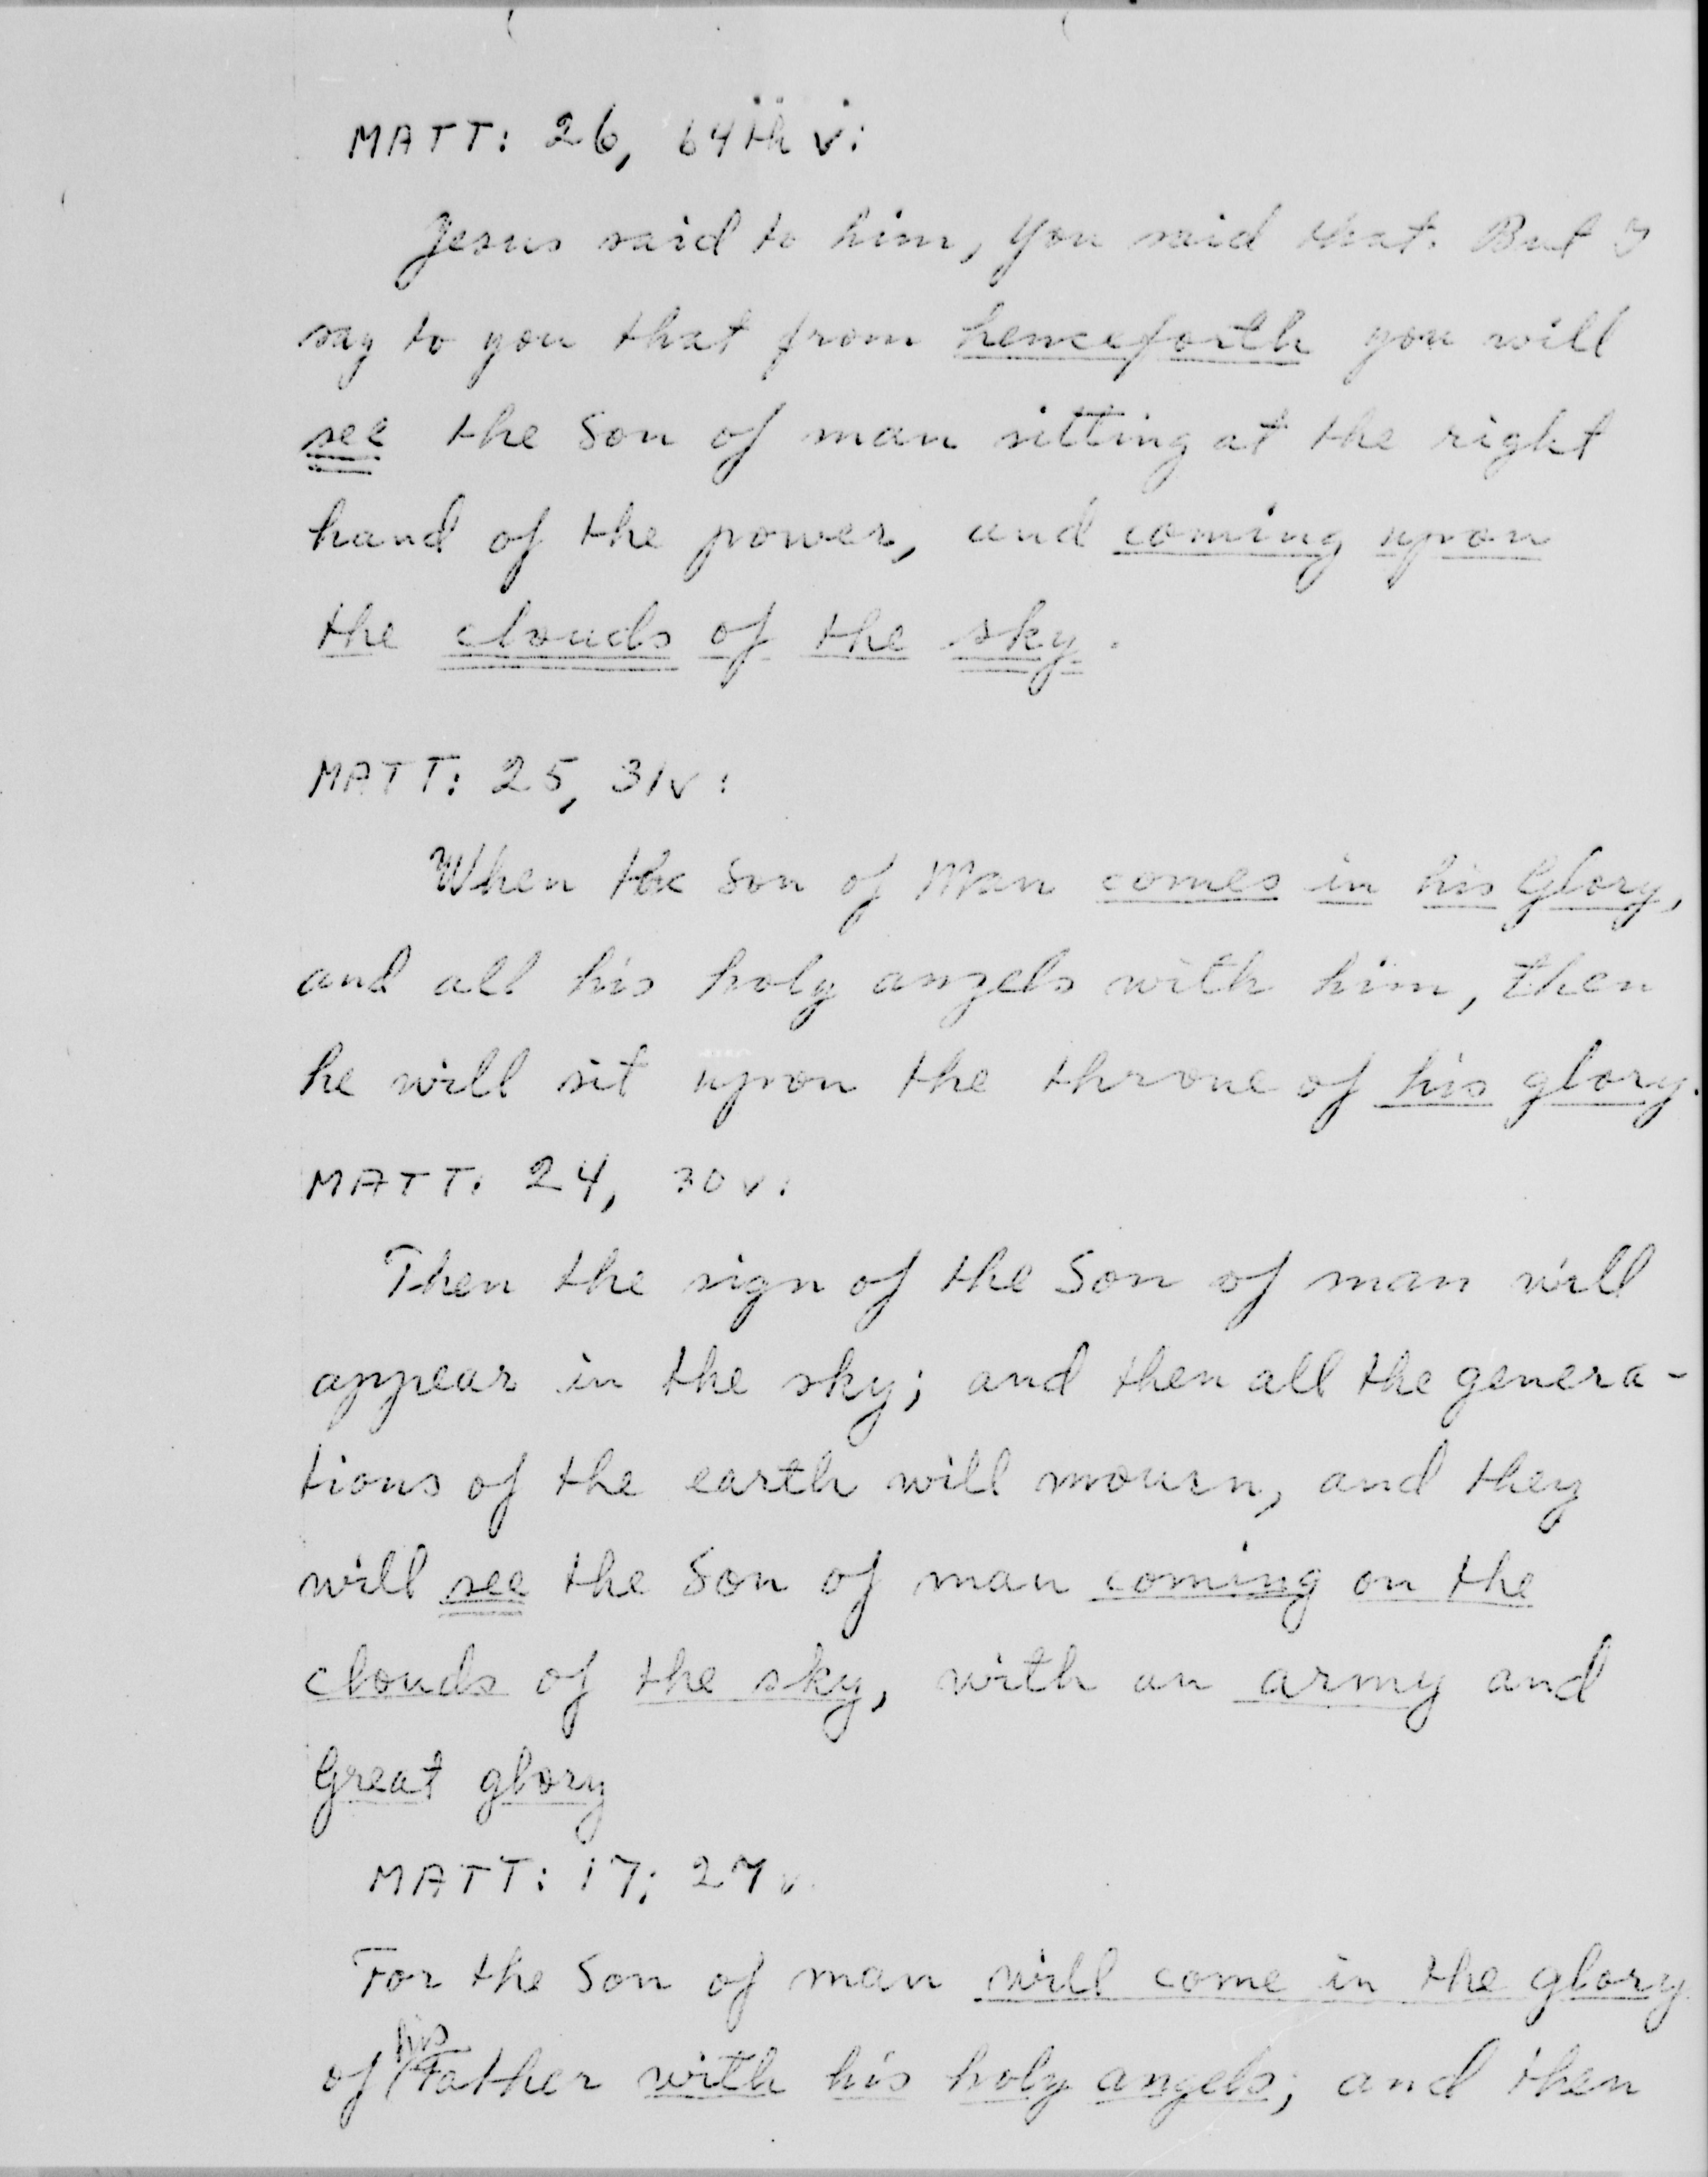 MATT: 26, 64th v:
Jesus said to him, you said that. But I
say to you that from henceforth you will
see the Son of man sitting at the right
hand of the power, and coming upon
the clouds of the sky.
MATT: 25, 31v:
When the Son of Man comes in his Glory,
and all his holy angels with him, then
he will sit upon the throne of his glory.
MATT: 24, 30v:
Then the sign of the Son of man will
appear in the sky; and then all the genera-
tions of the earth will mourn, and they
will see the Son of man coming on the
clouds of the sky, with an army and
Great glory
MATT: 17; 27v.
For the Son of man will come in the glory
of his Father with his holy angels; and then